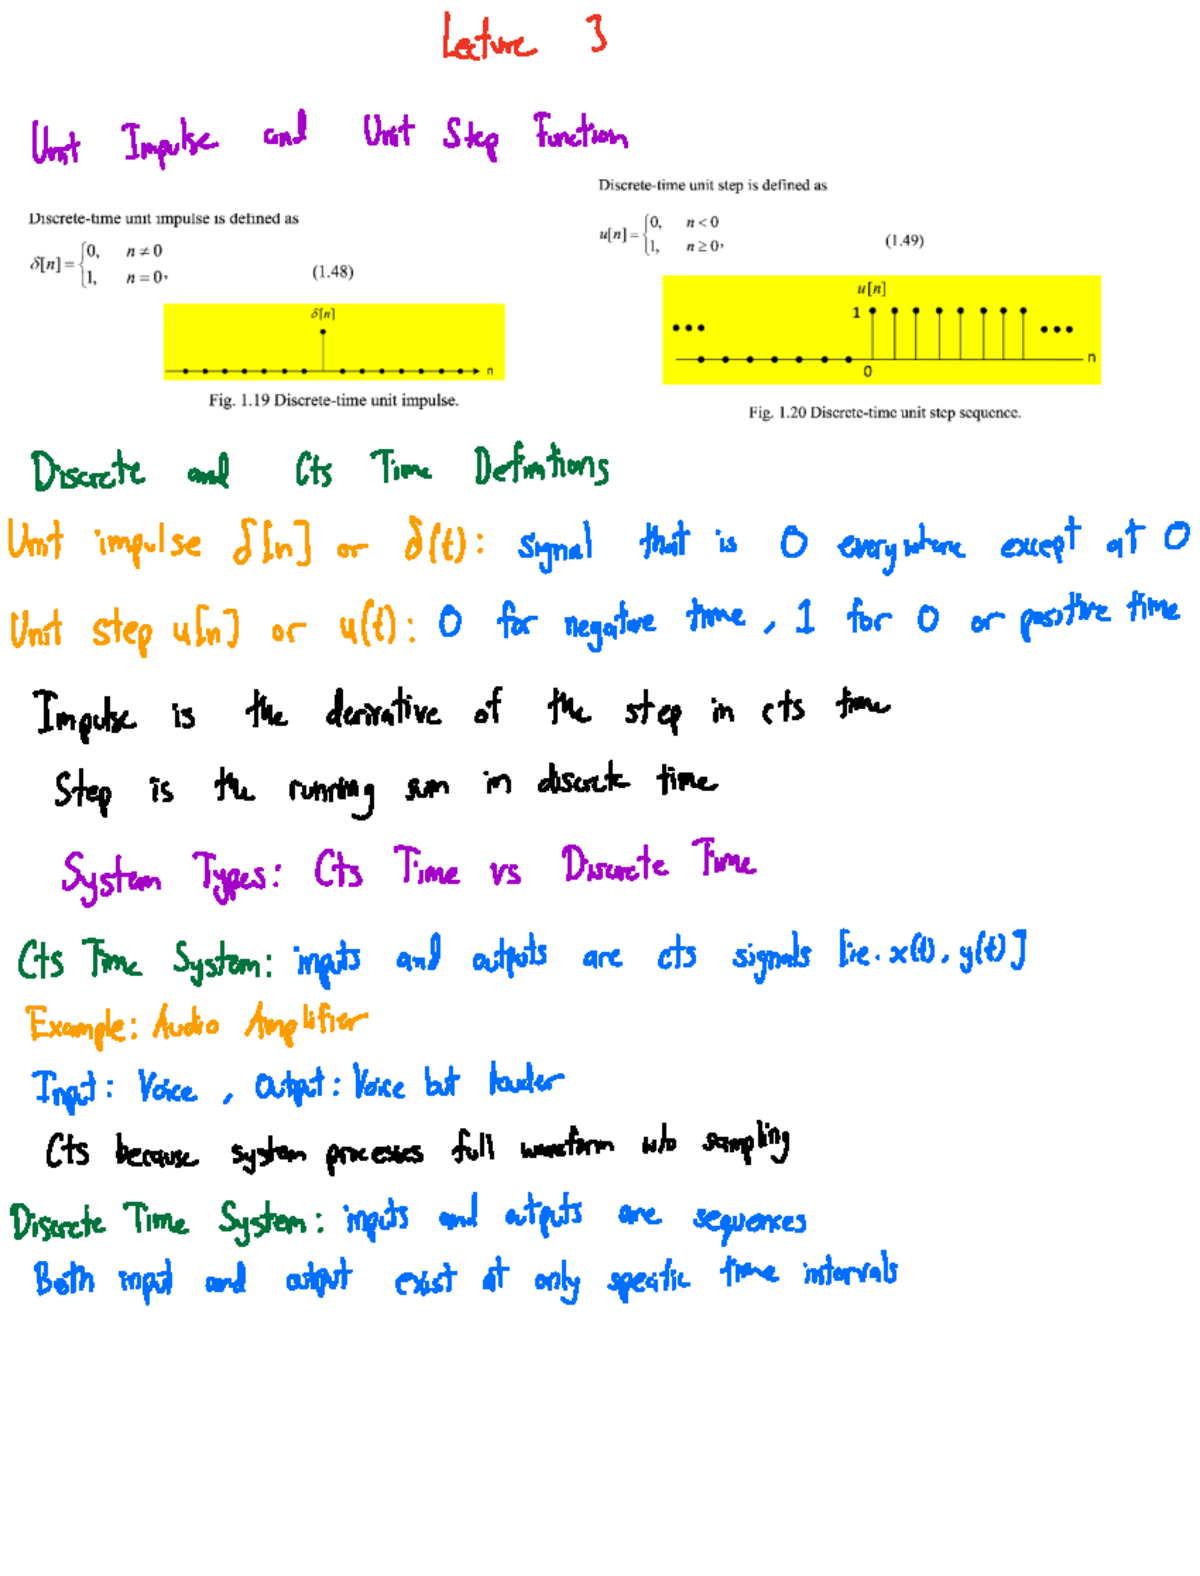 Lecture 3
Unit Impulse and Unit Step Function
Discrete-time unit impulse is defined as
δ[n] = {0, n ≠ 0
1, n = 0,
(1.48)
δ[n]
n
Fig. 1.19 Discrete-time unit impulse.
Discrete-time unit step is defined as
u[n] = {0, n < 0
1, n ≥ 0,
(1.49)
u[n]
1
0
n
Fig. 1.20 Discrete-time unit step sequence.
Discrete and Cts Time Definitions
Unit impulse δ[n] or δ(t): signal that is 0 everywhere except at 0
Unit step u[n] or u(t): 0 for negative time, 1 for 0 or positive time
Impulse is the derivative of the step in cts time
Step is the running sum in discrete time
System Types: Cts Time vs Discrete Time
Cts Time System: inputs and outputs are cts signals [ie. x(t), y(t)]
Example: Audio Amplifier
Input: Voice, Output: Voice but louder
Cts because system processes full waveform w/o sampling
Discrete Time System: inputs and outputs are sequences
Both input and output exist at only specific time intervals